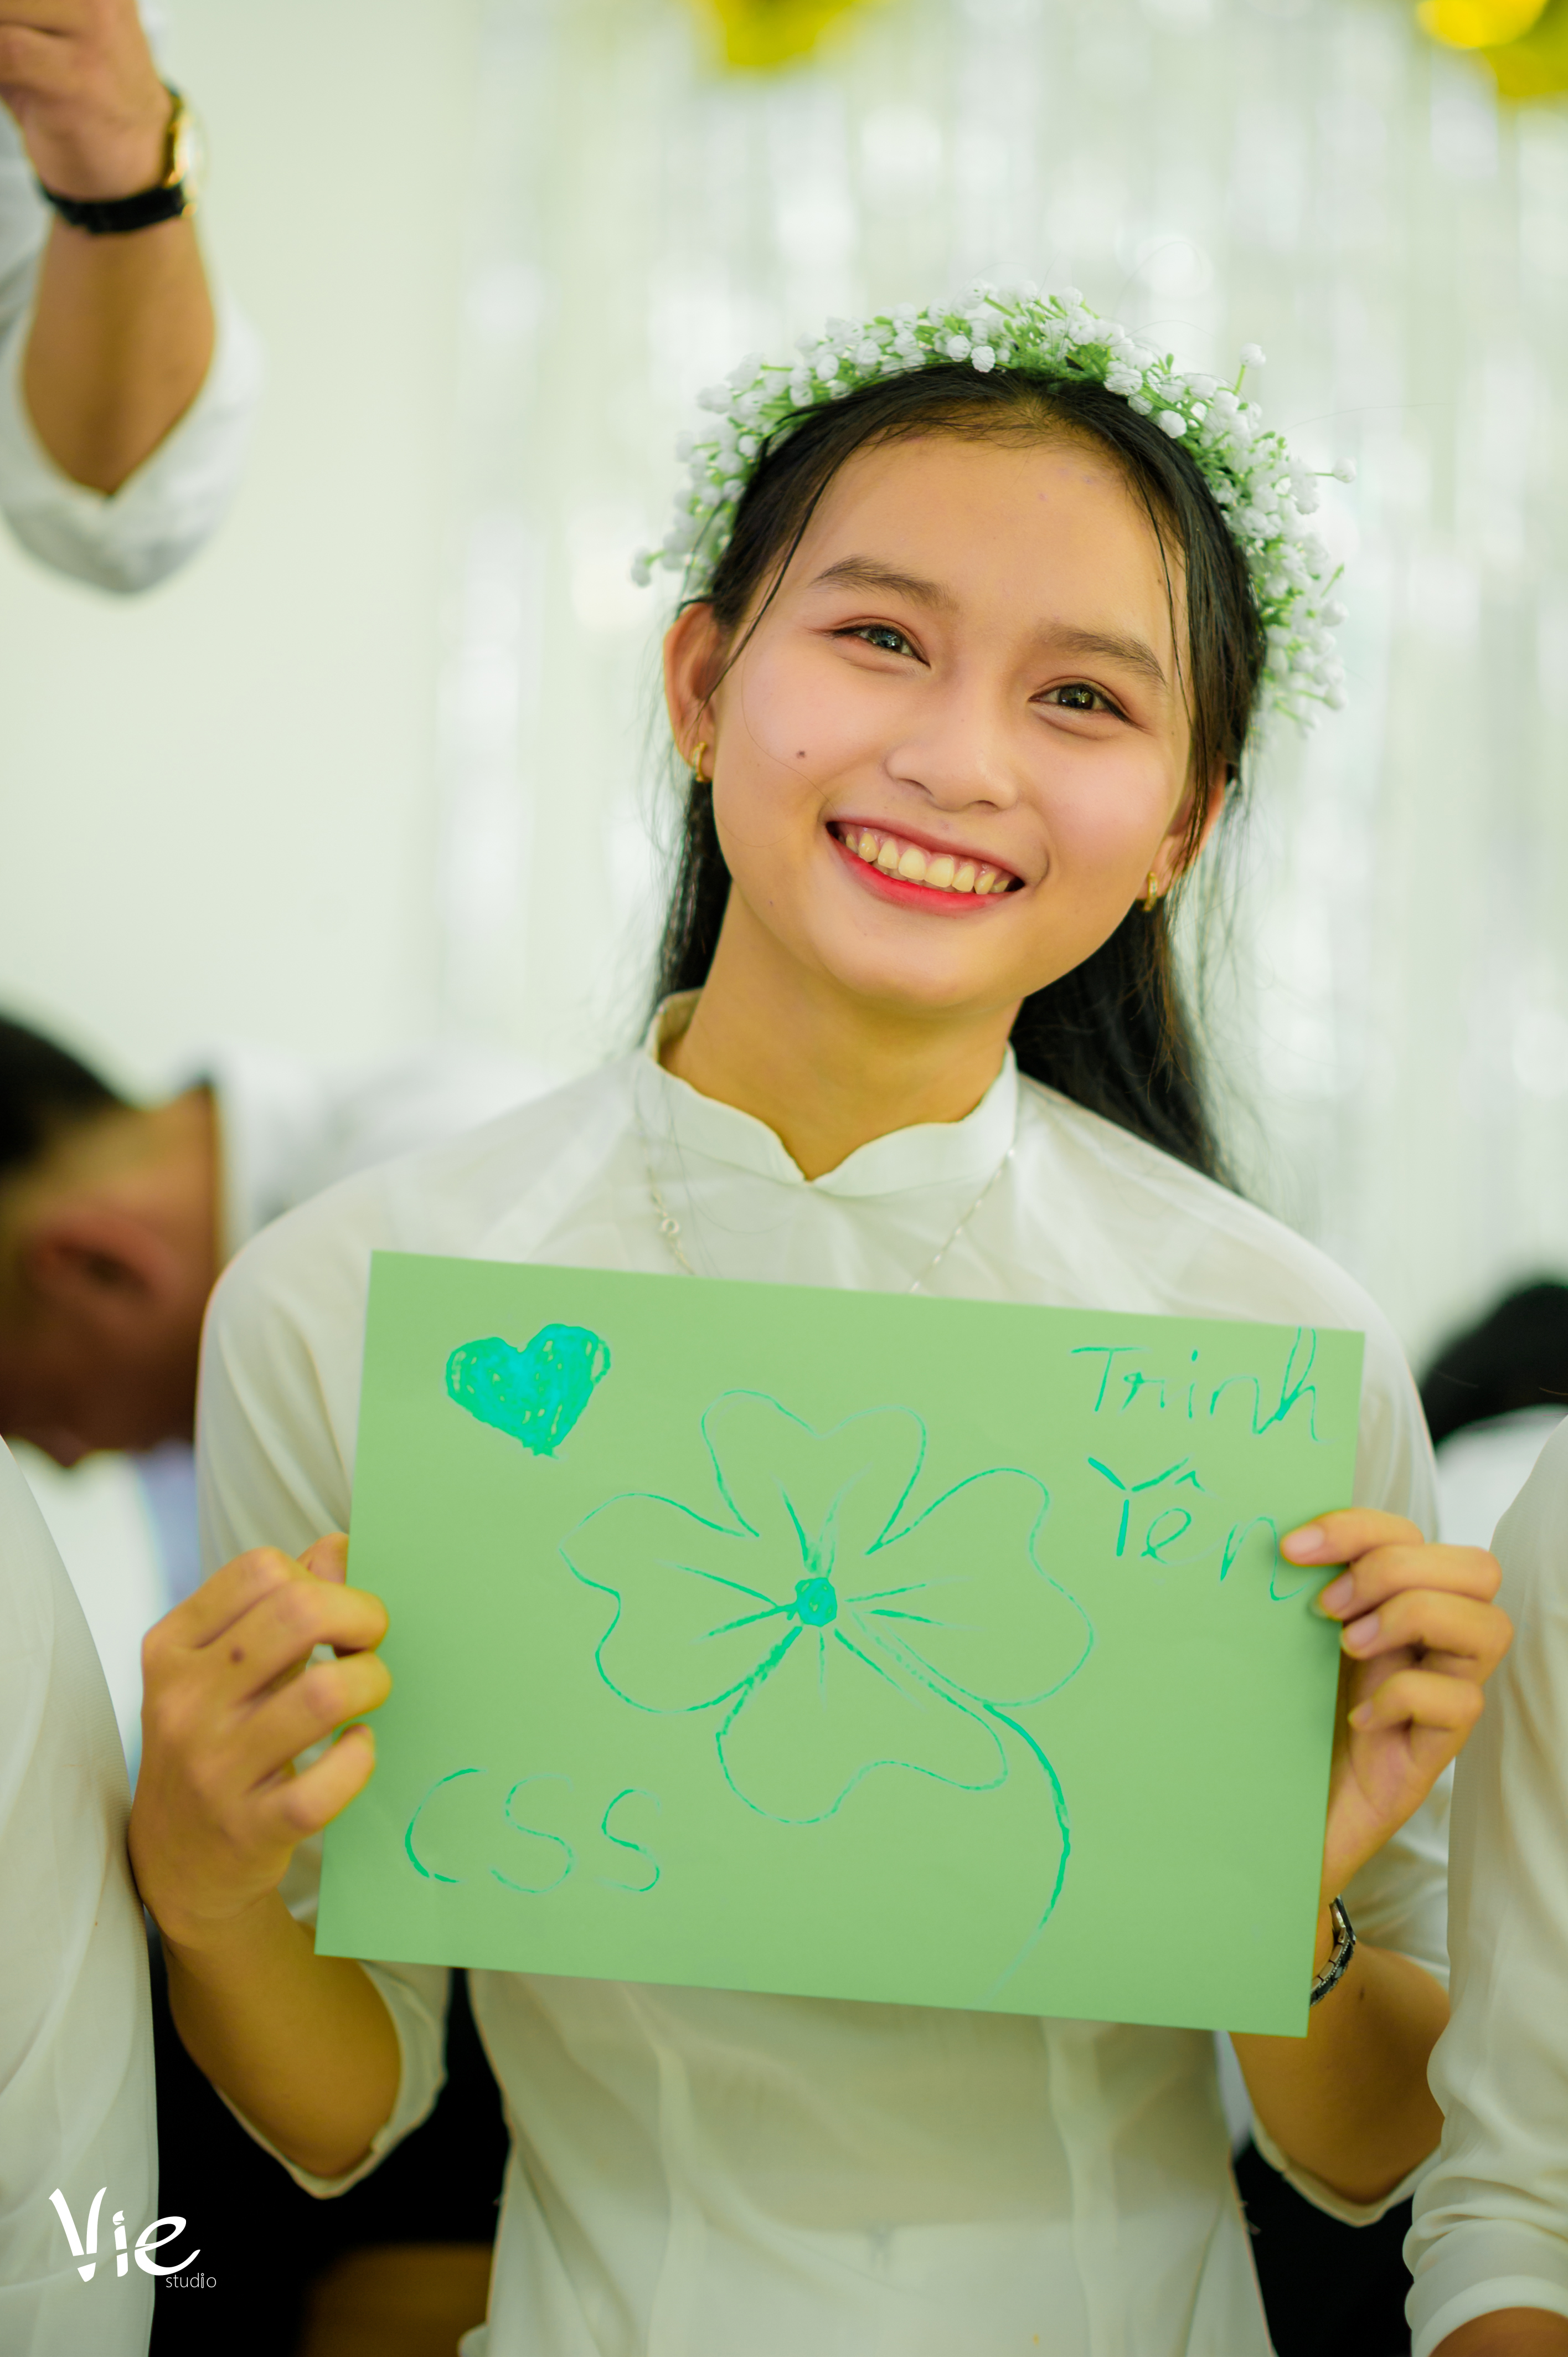 Trinh
Yên
CSS
Vie
studio